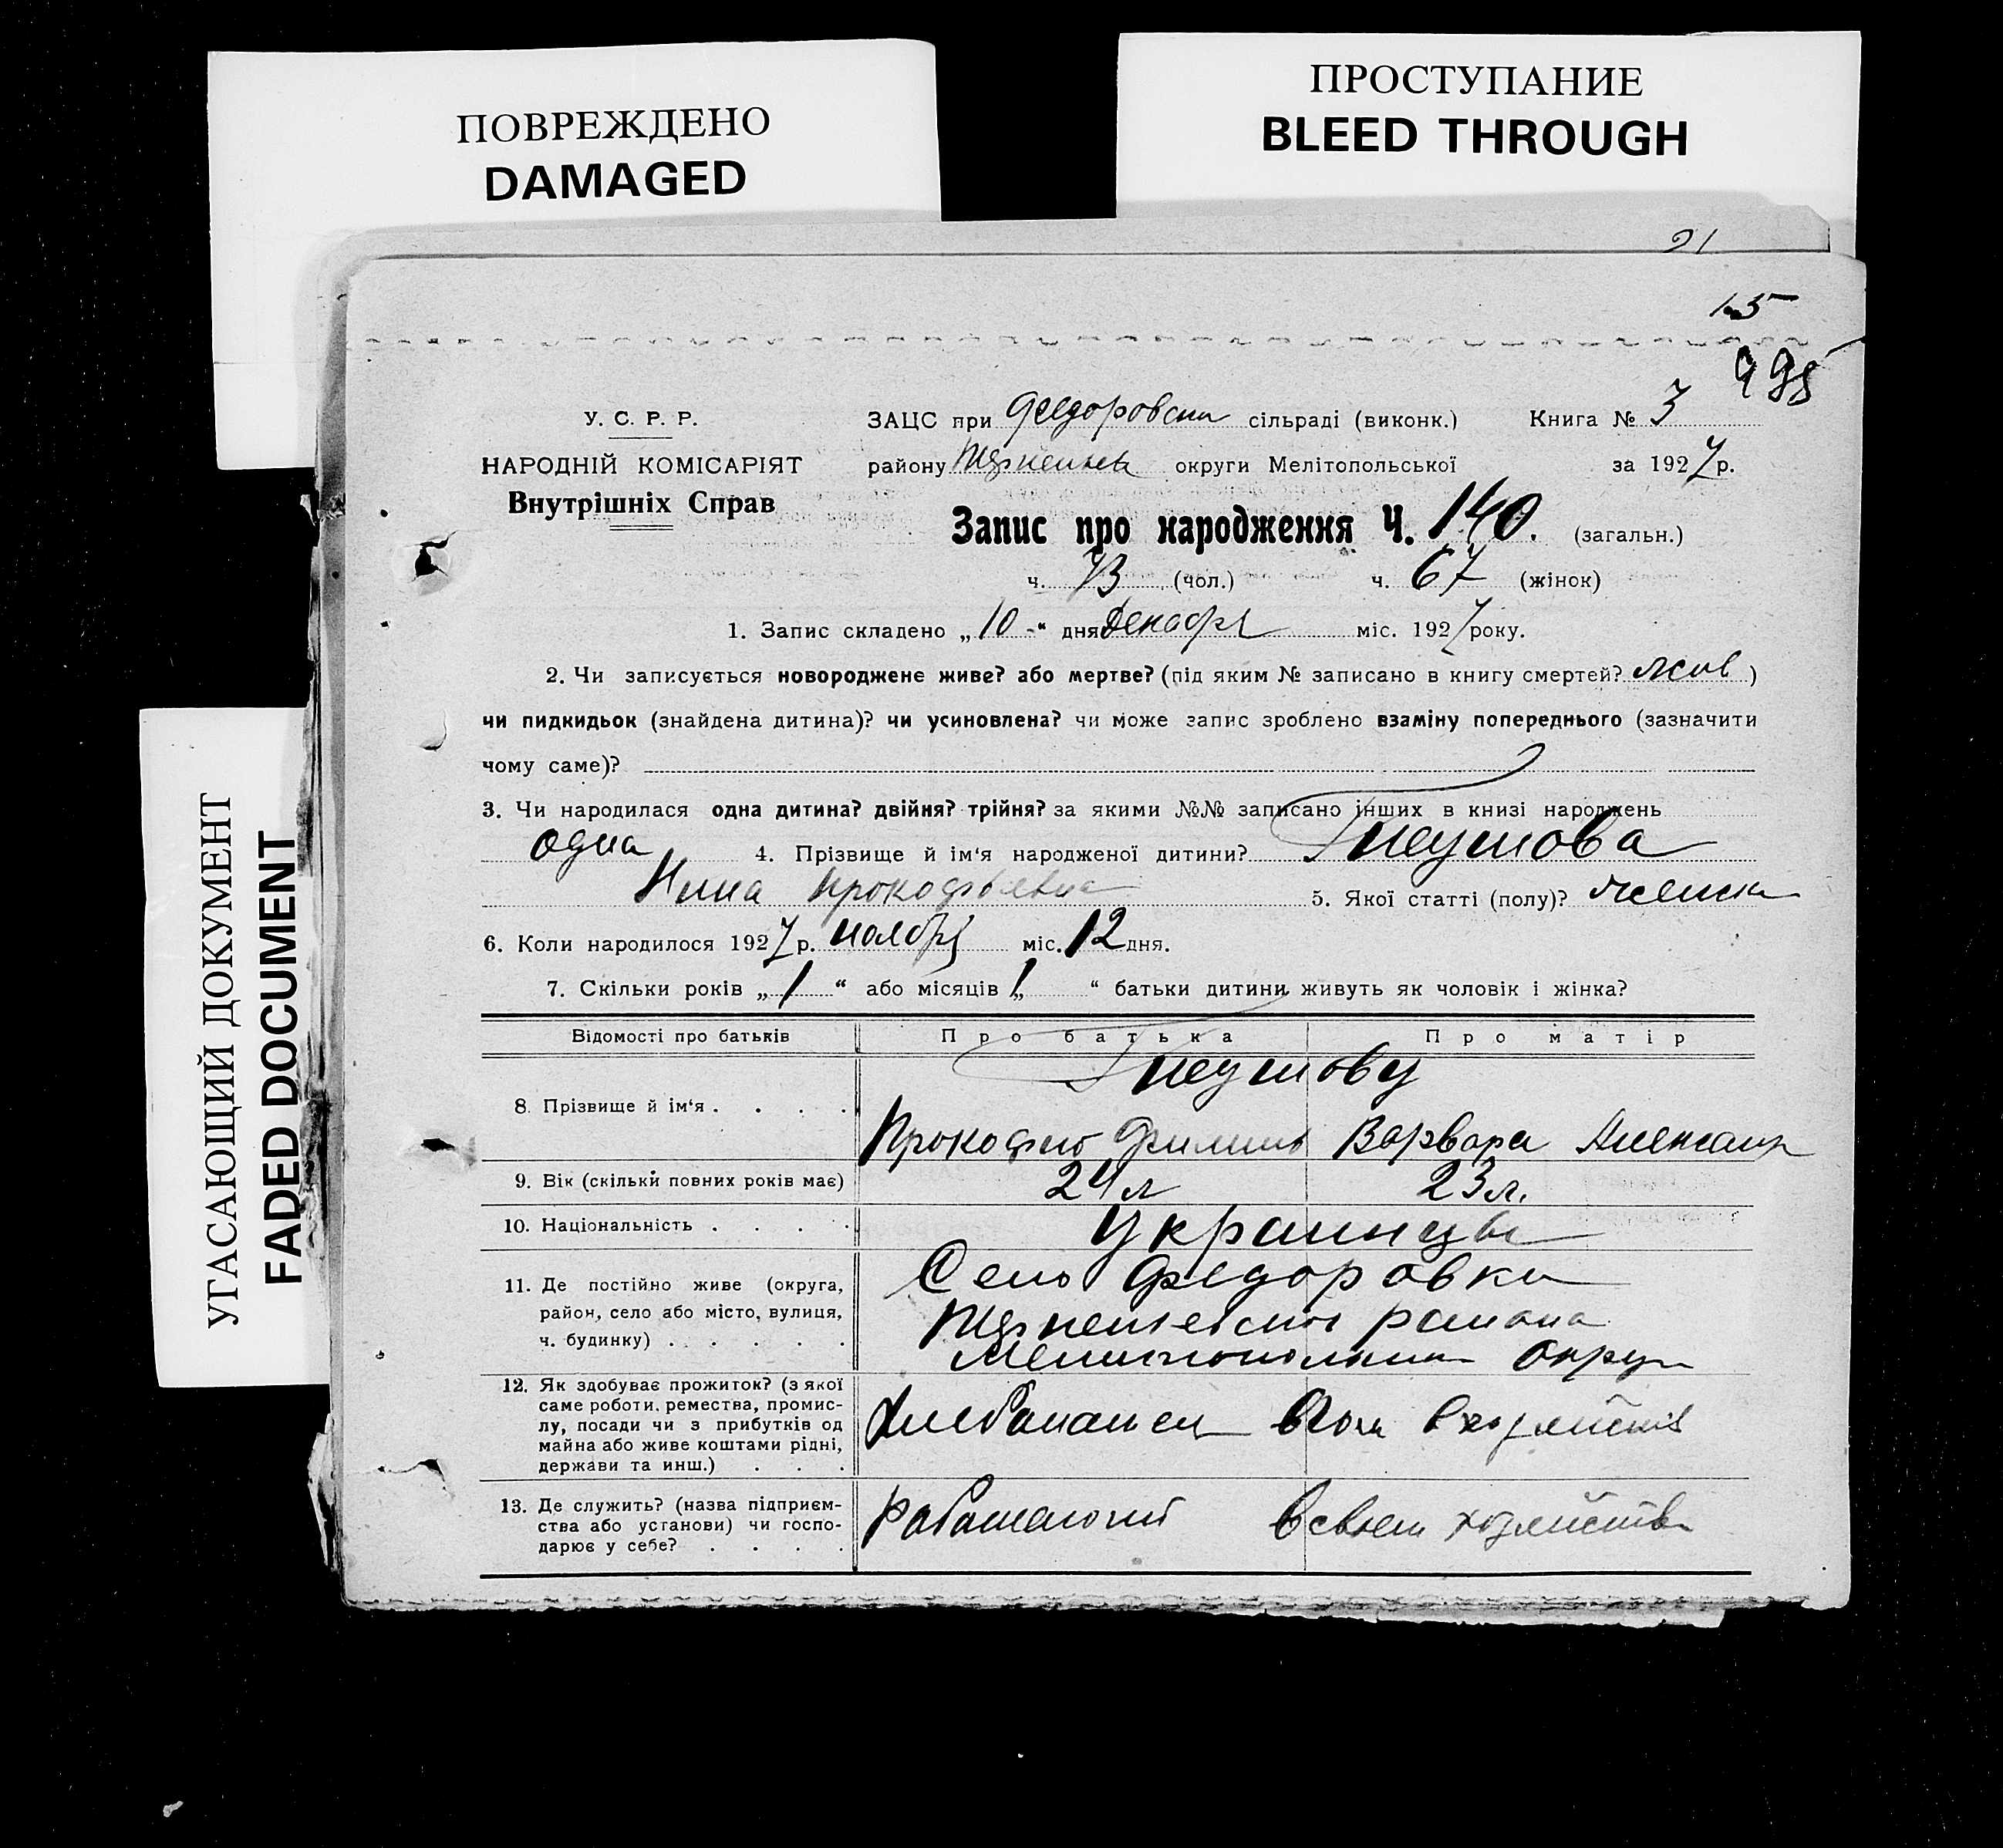 ПОВРЕЖДЕНО
DAMAGED
ПРОСТУПАНИЕ
BLEED THROUGH
УГАСАЮЩИЙ ДОКУМЕНТ
FADED DOCUMENT
21
15
У. С. Р. Р.
НАРОДНІЙ КОМІСАРІЯТ
Внутрішніх Справ
ЗАЦС при Федоровски сільраді (виконк.) Книга № 3
району округи Мелітопольської за 1927 р.
Запис про народження Ч. 140. (загальн.)
ч. 73 (чол.) ч. 67 (жінок)
1. Запис складено „ 10 - “ дня Декабря міс. 1927 року.
2. Чи записується новороджене живе? або мертве? (під яким № записано в книгу смертей? жив )
чи пидкидьок (знайдена дитина)? чи усиновлена? чи може запис зроблено взаміну попереднього (зазначити
чому саме)?
3. Чи народилася одна дитина? двійня? трійня? за якими №№ записано інших в книзі народжень
одна 4. Прізвище й ім‘я народженої дитини?
Нина Прокофьевна 5. Якої статті (полу)? женск
6. Коли народилося 1927 р. ноября міс. 12 дня.
7. Скільки років „ 1 “ або місяців „ “ батьки дитини живуть як чоловік і жінка?
Відомості про батьків Про батька Про матір
8. Прізвище й ім‘я . . . . .
Прокофию Филипп Варвара Александр
9. Вік (скільки повних років має) 24 л 23 л.
10. Національність . . . . Украинцы
11. Де постійно живе (округа,
район, село або місто, вулиця,
ч. будинку) . . . . .
Село Федоровки
района
Мелитопольский Округ
12. Як здобуває прожиток? (з якої
саме роботи, ремества, промис-
лу, посади чи з прибутків од
майна або живе коштами рідні,
держави та инш.) . . .
Хлебопашец
13. Де служить? (назва підприєм-
ства або установи) чи госпо-
дарює у себе? . . . .
Работают в своем хозяйстве